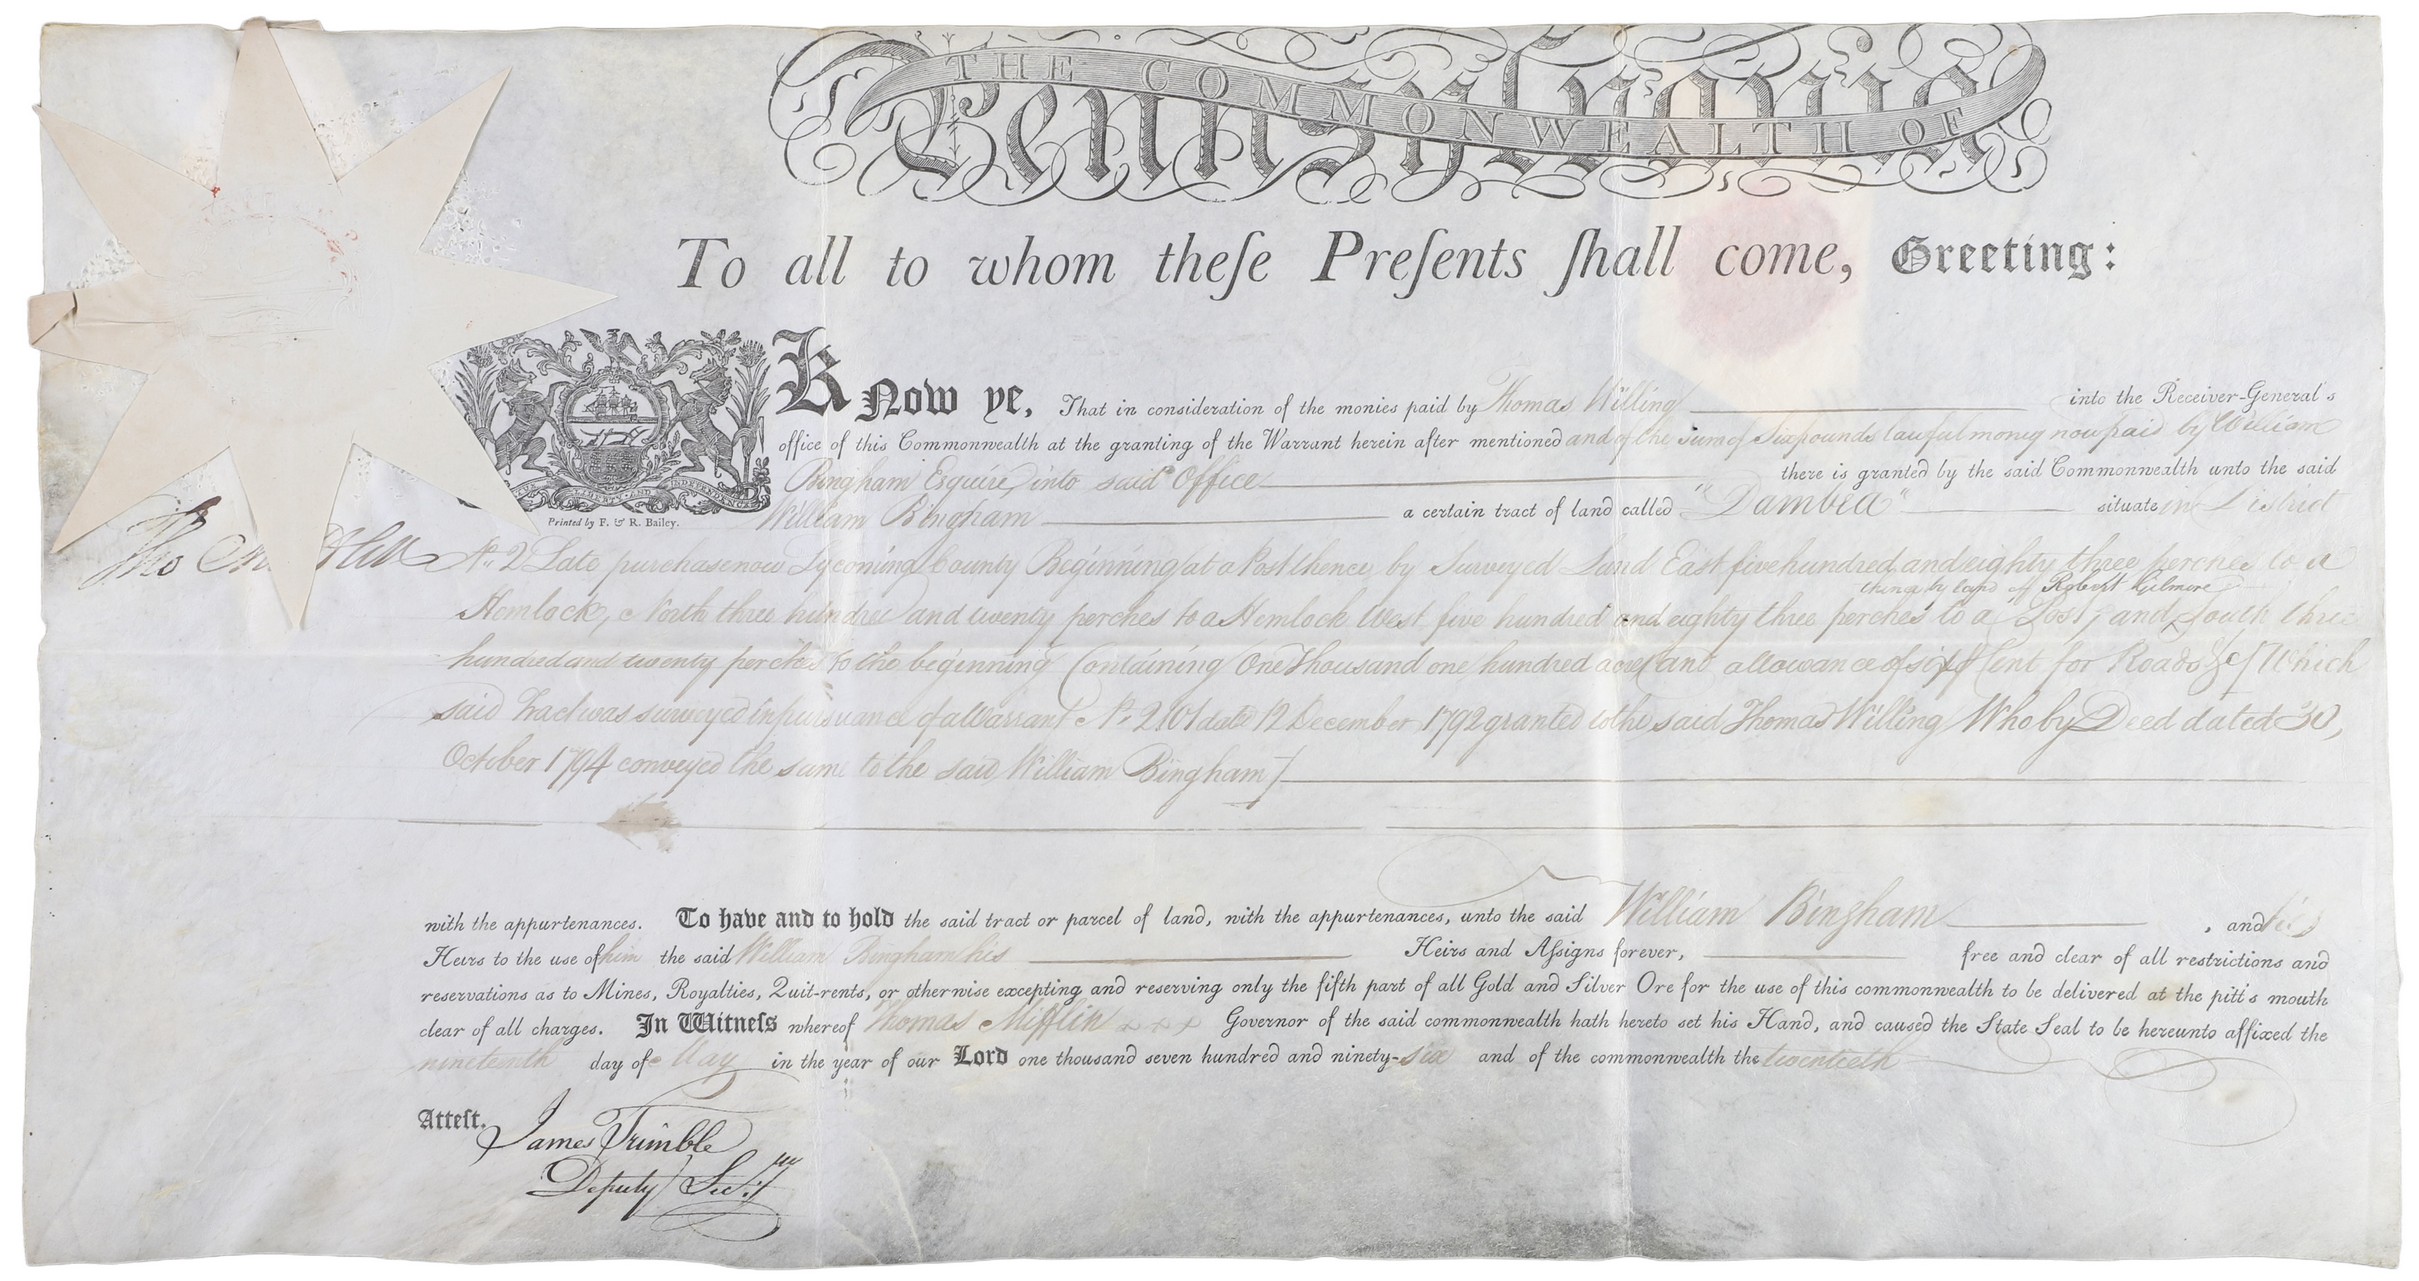 THE COMMONWEALTH OF
Pennsylvania
To all to whom theſe Preſents ſhall come, Greeting:
Know ye, That in consideration of the monies paid by Thomas Willing into the Receiver-General's
office of this Commonwealth at the granting of the Warrant herein after mentioned and of the sum of Six pounds lawful money now paid by William
Bingham Esquire, into said Office there is granted by the said Commonwealth unto the said
LIBERTY AND INDEPENDENCE
William Bingham a certain tract of land called "Dambea" situate in District
Printed by F. & R. Bailey.
Tho Mifflin
No. 2 Late purchase now Lycoming County Beginning at a Post thence by Surveyed Land East five hundred and eighty three perches to a
Hemlock, North three hundred and twenty perches to a Hemlock West five hundred and eighty three perches to a Post, and ^ South three
thence by land of Robert Gilmore
hundred and twenty perches to the beginning Containing One thousand one hundred acres and allowance of six ⅌ Cent for Roads &c [Which
said Tract was surveyed in pursuance of a Warrant No. 2.101 date 12 December 1792 granted to the said Thomas Willing Who by Deed dated 30,
October 1794 conveyed the same to the said William Bingham]
with the appurtenances. To have and to hold the said tract or parcel of land, with the appurtenances, unto the said William Bingham, and his
Heirs to the use of him the said William Bingham his Heirs and Aſsigns forever, free and clear of all restrictions and
reservations as to Mines, Royalties, Quit-rents, or otherwise excepting and reserving only the fifth part of all Gold and Silver Ore for the use of this commonwealth to be delivered at the pitt's mouth
clear of all charges. In Witneſs whereof Thomas Mifflin x x x Governor of the said commonwealth hath hereto set his Hand, and caused the State Seal to be hereunto affixed the
nineteenth day of May in the year of our Lord one thousand seven hundred and ninety-six and of the commonwealth the twentieth
Atteſt.
James Trimble
Deputy Secry